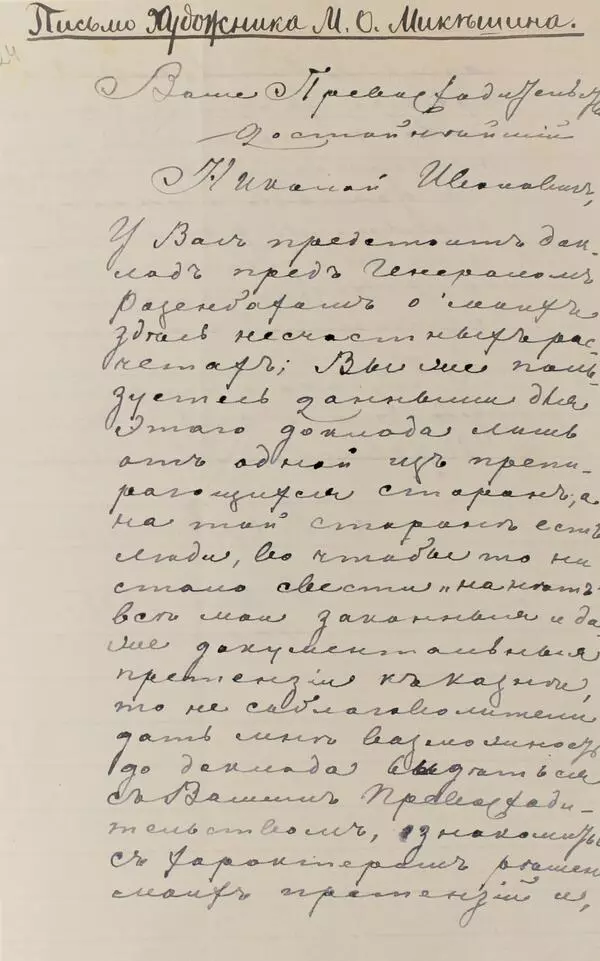 Письмо Художника М. О. Микѣшина.
24
Ваше Превосходительство
достойнѣйшій
Николай Ивановичъ,
У Васъ предстоитъ док-
ладъ предъ Генераломъ
Розенбахомъ о моихъ
здѣсь несчастныхъ рас-
четахъ; Вы же поль-
зуетесь данными для
этого доклада лишь
отъ одной изъ препи-
рающихся сторонъ, а
на той сторонѣ есть
люди, во чтобы то ни
стало свести „на нѣтъ“
всѣ мои законныя и да-
же документальныя
претензіи къ казнѣ,
то не соблаговолите ли
дать мнѣ возможность
до доклада видѣться
съ Вашимъ Превосходи-
тельствомъ, ознакомить
съ характеромъ
моихъ претензій и,